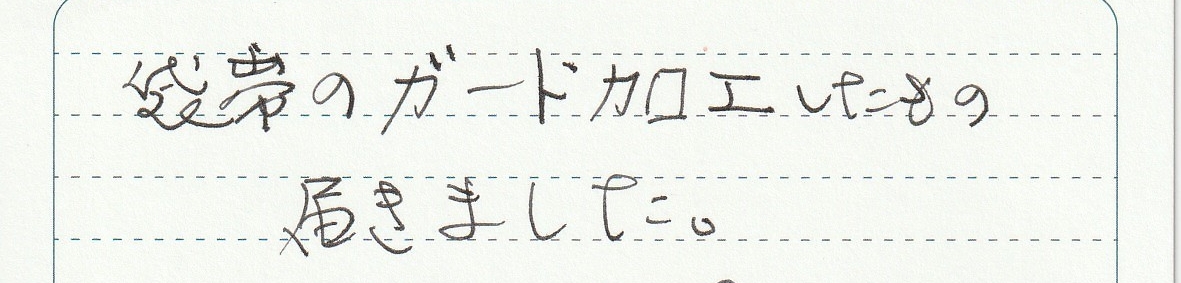 袋帯のガード加工したもの
届きました。